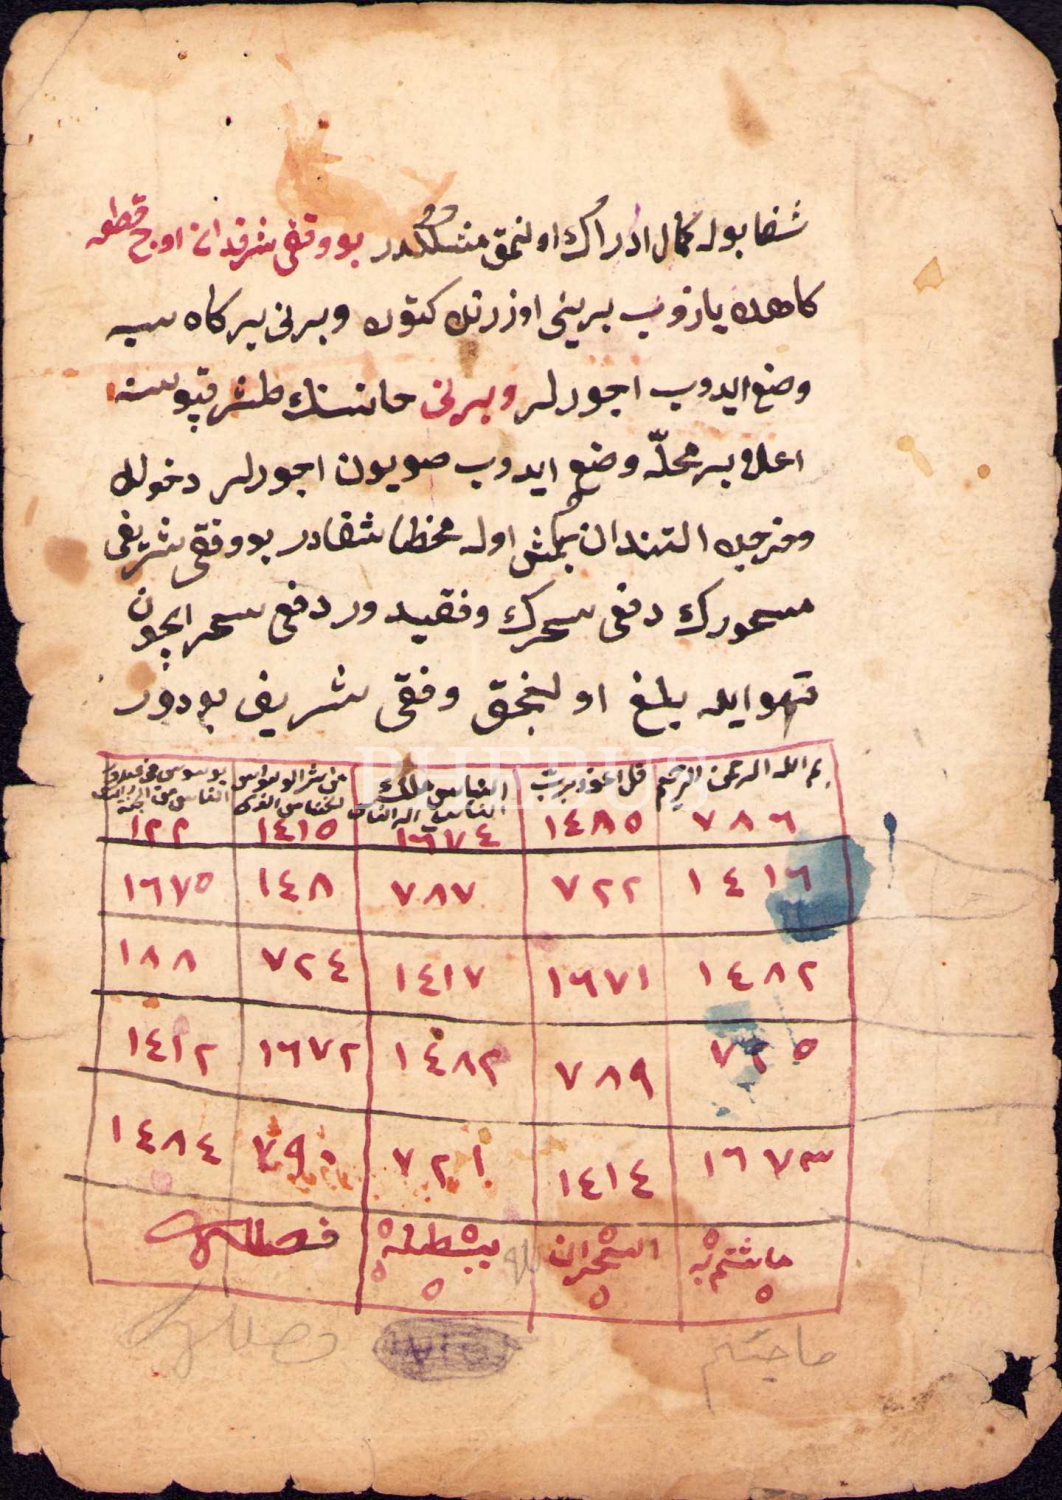 شفا بوله كمال ادراك اولنمق مشكلدر بو وفق شرفدان اوچ قطعه
كاهده يازوب بريني اوزرنك كتوره وبرنى بير كاه سيه
وضع ايدوب اچورلر وبرنى خانسنك طشره قپوسنه
اعلى بر محله وضع ايدوب صويون اچورلر دخولك
وخرجده التندان كمش اوله محظا شفادر بو وفق شريفى
مسحورك دفعى سحرك وفقيدور دفعى سحر ايچون
ايله يلغ اولنجق وفقى شريف بودور
بسم الله الرحمن الرحيم قل اعوذ برب الناس ملك الناس اله الناس من شر الوسواس الخناس الذى يوسوس فى صدور الناس من الجنة
٧٨٦ ١٤٨٥ ١٦٧٤ ١٤١٥ ١٢٢
١٤١٦ ٧٢٢ ٧٨٧ ١٤٨ ١٦٧٥
١٤٨٢ ١٦٧١ ١٤١٧ ٧٢٤ ١٨٨
٧٢٥ ٧٨٩ ١٤٨٣ ١٦٧٢ ١٤١٢
١٦٧٣ ١٤١٤ ٧٢١ ٧٩٠ ١٤٨٤
ماجئتم به السحر ان
ماجئتم
PHEBUS